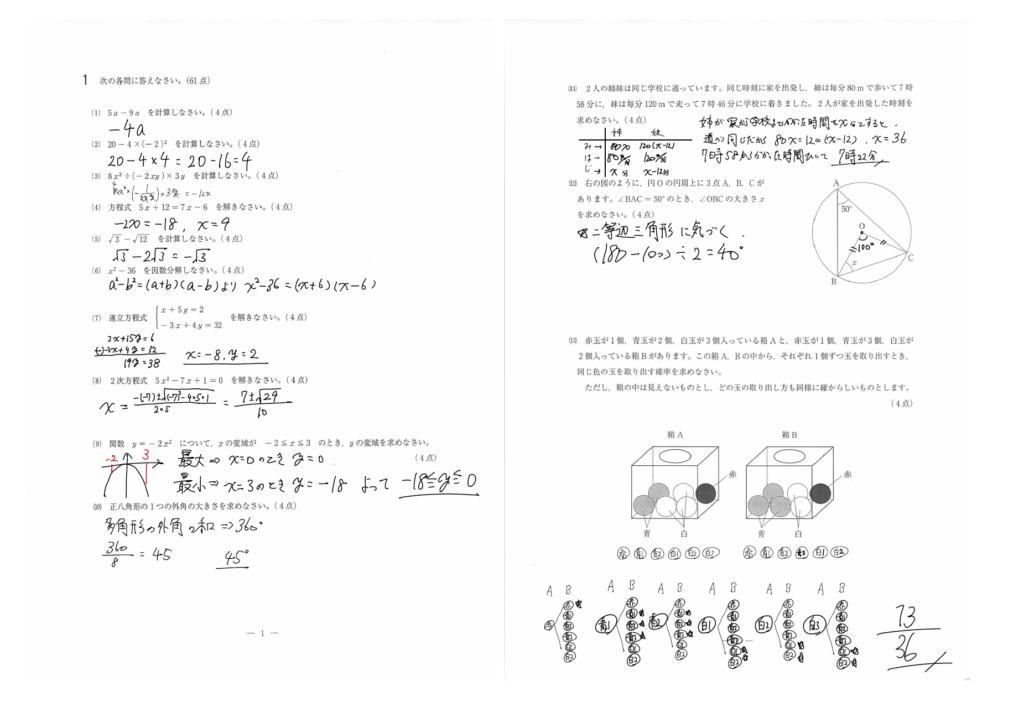 1 次の各問に答えなさい。(61点)
(1) 5a－9a を計算しなさい。(4点)
－4a
(2) 20－4×(－2)² を計算しなさい。(4点)
20－4×4＝20－16＝4
(3) 8x²÷(－2xy)×3y を計算しなさい。(4点)
＝－12x
(4) 方程式 5x＋12＝7x－6 を解きなさい。(4点)
－2x＝－18, x＝9
(5) √3－√12 を計算しなさい。(4点)
√3－2√3＝－√3
(6) x²－36 を因数分解しなさい。(4点)
a²－b²＝(a+b)(a－b)より x²－36＝(x+6)(x－6)
(7) 連立方程式 { x＋5y＝2 －3x＋4y＝32 を解きなさい。(4点)
3x+15y＝6
19y＝38
x＝－8, y＝2
(8) 2次方程式 5x²－7x＋1＝0 を解きなさい。(4点)
x＝ －(－7)±√(－7)²－4×5×1 / 2×5 ＝ 7±√29 / 10
(9) 関数 y＝－2x² について, xの変域が －2≦x≦3 のとき, yの変域を求めなさい。
(4点)
－2 3
最大⇒ x＝0のとき y＝0.
最小⇒ x＝3のとき y＝－18 よって －18≦y≦0
(10) 正八角形の1つの外角の大きさを求めなさい。(4点)
多角形の外角の和⇒360°
360/8＝45 45°
― 1 ―
(11) 2人の姉妹は同じ学校に通っています。同じ時刻に家を出発し, 姉は毎分80mで歩いて7時
58分に, 妹は毎分120mで走って7時46分に学校に着きました。2人が家を出発した時刻を
求めなさい。(4点)
姉が家から学校までかかった時間をx分とすると,
道のり同じだから 80x＝120(x－12). x＝36
7時58からかかった時間ひいて 7時22分
姉 妹
み→ 80x 120(x－12)
は→
じ→ x分 x－12分
(12) 右の図のように, 円Oの円周上に3点A, B, Cが
あります。∠BAC＝50°のとき, ∠OBCの大きさx
を求めなさい。(4点)
☆二等辺三角形に気づく.
(180－100)÷2＝40°
A
50°
O
100°
x
B
C
(13) 赤玉が1個, 青玉が2個, 白玉が3個入っている箱Aと, 赤玉が1個, 青玉が3個, 白玉が
2個入っている箱Bがあります。この箱A, Bの中から, それぞれ1個ずつ玉を取り出すとき,
同じ色の玉を取り出す確率を求めなさい。
ただし, 箱の中は見えないものとし, どの玉の取り出し方も同様に確からしいものとします。
(4点)
箱A 箱B
赤 赤
青 白 青 白
A B A B A B A B A B A B
赤 青1 青2 白1 白2 白3
13/36